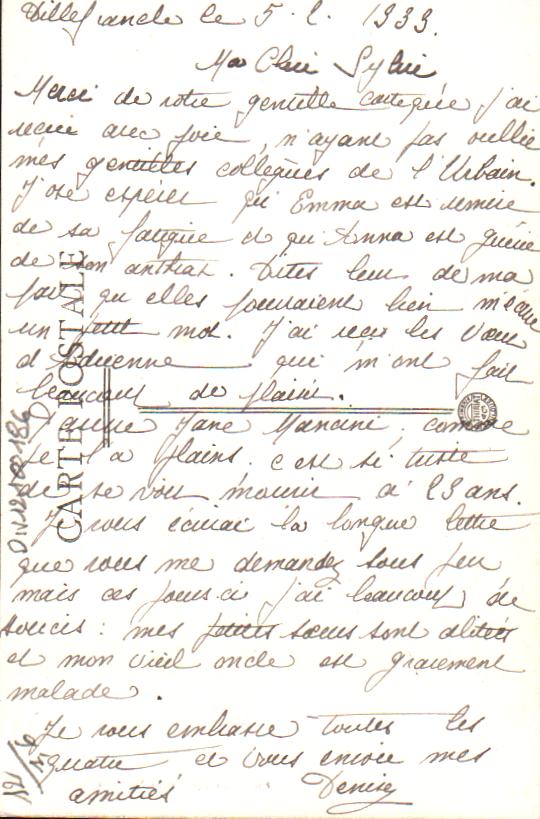 Villefranche le 5. 2. 1939.
Ma Chère Sylvie
Merci de votre gentille carte que j'ai
reçue avec joie, n'ayant pas oublié
mes gentilles collègues de l'Urbain.
J'ose espérer qu'Emma est remise
de sa fatigue et qu'Anna est guérie
de son anthrax. Dites leur de ma
part qu'elles pourraient bien m'écrire
un petit mot. J'ai reçu les vœux
d'Adrienne qui m'ont fait
beaucoup de plaisir.
Pauvre Jane Mancini, comme
je la plains. c'est si triste
de se voir mourir à 23 ans.
Je vous écrirai la longue lettre
que vous me demandez sous peu
mais ces jours ci j'ai beaucoup de
soucis : mes petites sœurs sont alitées
et mon vieil oncle est gravement
malade.
Je vous embrasse toutes les
quatre et vous envoie mes
amitiés Denise
CARTE POSTALE